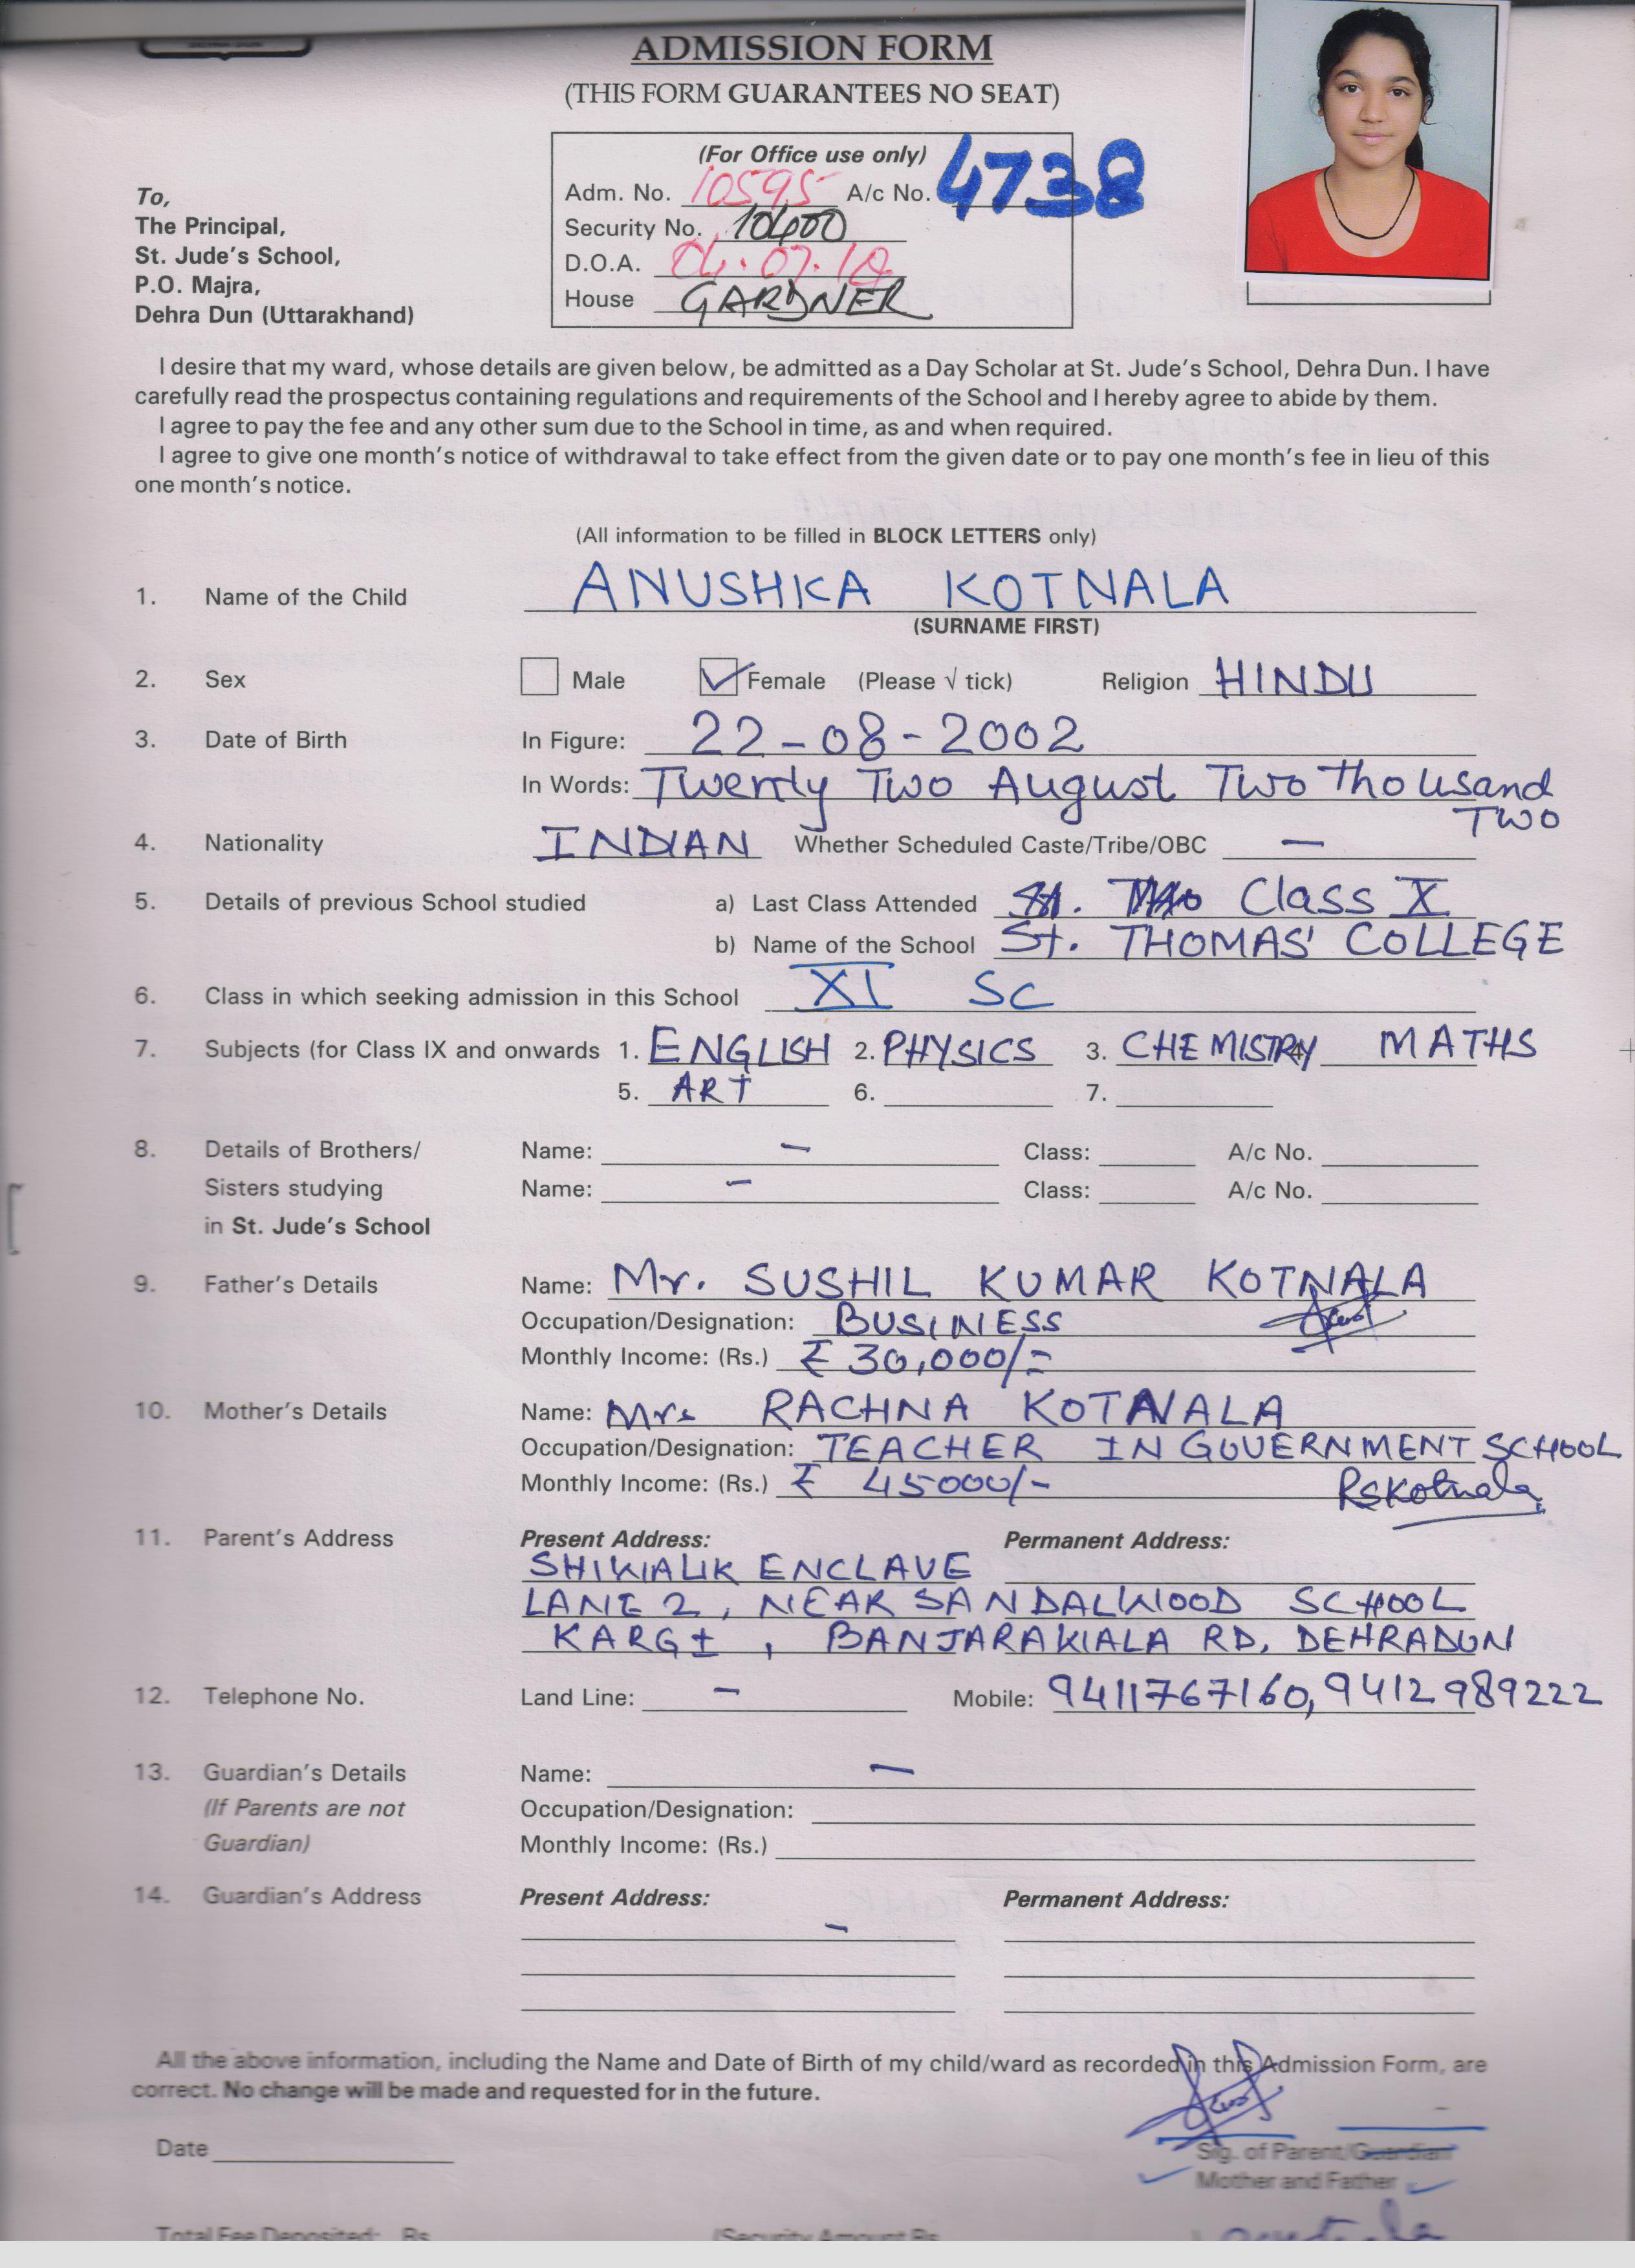 ADMISSION FORM
(THIS FORM GUARANTEES NO SEAT)
(For Office use only)
Adm. No. 10595 A/c No. 4738
Security No. 10400
D.O.A. 04.07.
House GARDNER
To,
The Principal,
St. Jude's School,
P.O. Majra,
Dehra Dun (Uttarakhand)
I desire that my ward, whose details are given below, be admitted as a Day Scholar at St. Jude's School, Dehra Dun. I have
carefully read the prospectus containing regulations and requirements of the School and I hereby agree to abide by them.
I agree to pay the fee and any other sum due to the School in time, as and when required.
I agree to give one month's notice of withdrawal to take effect from the given date or to pay one month's fee in lieu of this
one month's notice.
(All information to be filled in BLOCK LETTERS only)
1. Name of the Child ANUSHKA KOTNALA
(SURNAME FIRST)
2. Sex Male Female (Please √ tick) Religion HINDU
3. Date of Birth In Figure: 22-08-2002
In Words: Twenty Two August Two Thousand
Two
4. Nationality INDIAN Whether Scheduled Caste/Tribe/OBC —
5. Details of previous School studied a) Last Class Attended Class X
b) Name of the School St. THOMAS' COLLEGE
6. Class in which seeking admission in this School XI SC
7. Subjects (for Class IX and onwards 1. ENGLISH 2. PHYSICS 3. CHEMISTRY 4. MATHS
5. ART 6. 7.
8. Details of Brothers/ Name: — Class: A/c No.
Sisters studying Name: — Class: A/c No.
in St. Jude's School
9. Father's Details Name: Mr. SUSHIL KUMAR KOTNALA
Occupation/Designation: BUSINESS
Monthly Income: (Rs.) ₹ 30,000/=
10. Mother's Details Name: Mrs RACHNA KOTNALA
Occupation/Designation: TEACHER IN GOVERNMENT SCHOOL
Monthly Income: (Rs.) ₹ 45000/- RSKotnala
11. Parent's Address Present Address: Permanent Address:
SHIWALIK ENCLAVE
LANE 2, NEAR SANDALWOOD SCHOOL
KARGI, BANJARAWALA RD, DEHRADUN
12. Telephone No. Land Line: — Mobile: 9411767160, 9412989222
13. Guardian's Details Name: —
(If Parents are not Occupation/Designation:
Guardian) Monthly Income: (Rs.)
14. Guardian's Address Present Address: Permanent Address:
—
All the above information, including the Name and Date of Birth of my child/ward as recorded in this Admission Form, are
correct. No change will be made and requested for in the future.
Date
Sig. of Parent/Guardian
Mother and Father
Total Fee Deposited: Rs. (Security Amount Rs.